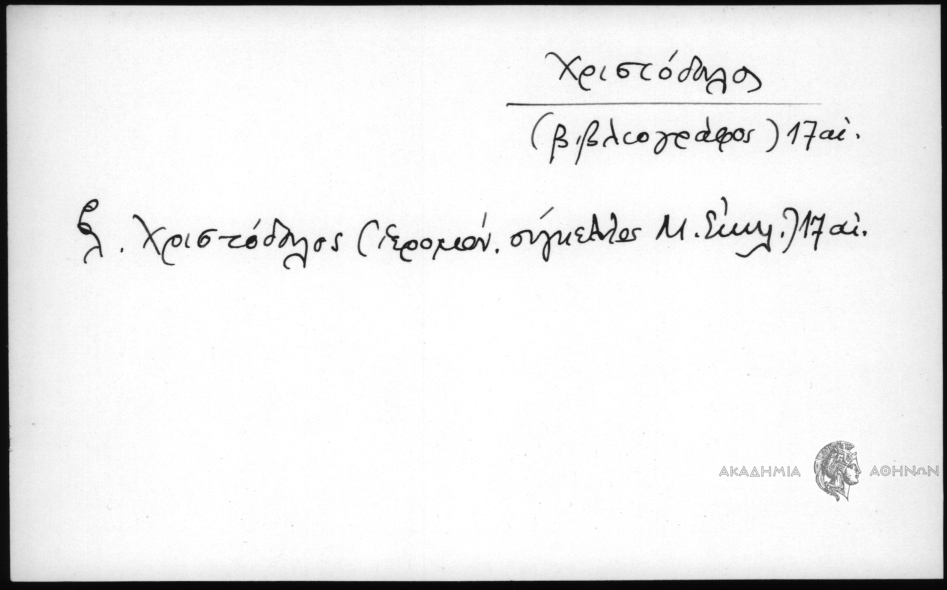 Χριστόδουλος
(βιβλιογράφος) 17 αἰ.
βλ. Χριστόδουλος (ἱερομόν. σύγκελλος Μ. Ἐκκλ.) 17 αἰ.
ΑΚΑΔΗΜΙΑ ΑΘΗΝΩΝ